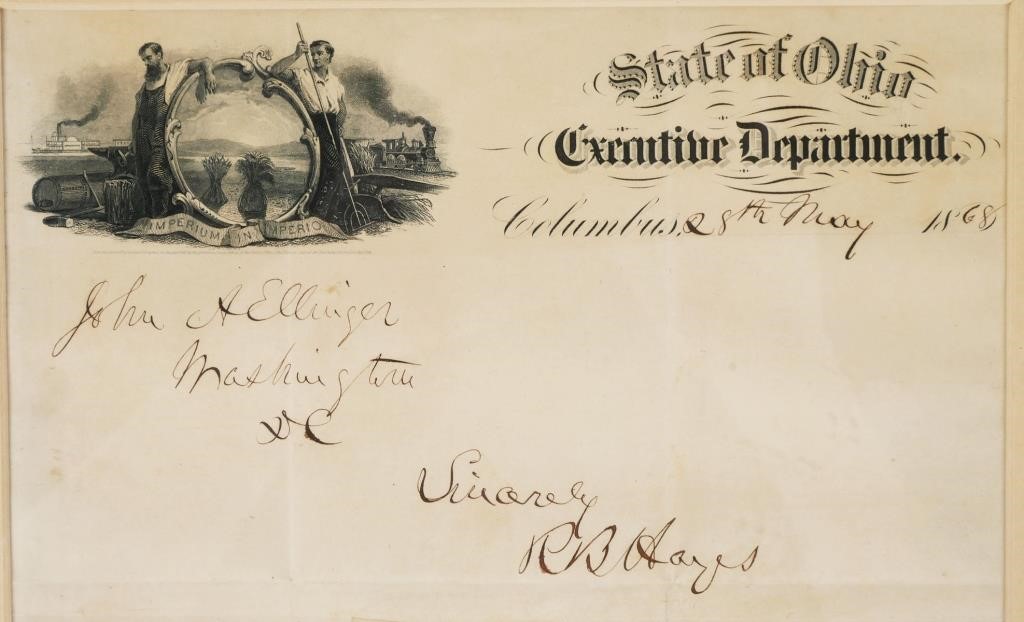 State of Ohio
Executive Department.
Columbus, 28th May 1868
IMPERIUM IN IMPERIO
John A Ellinger
Washington
DC
Sincerely
R B Hayes